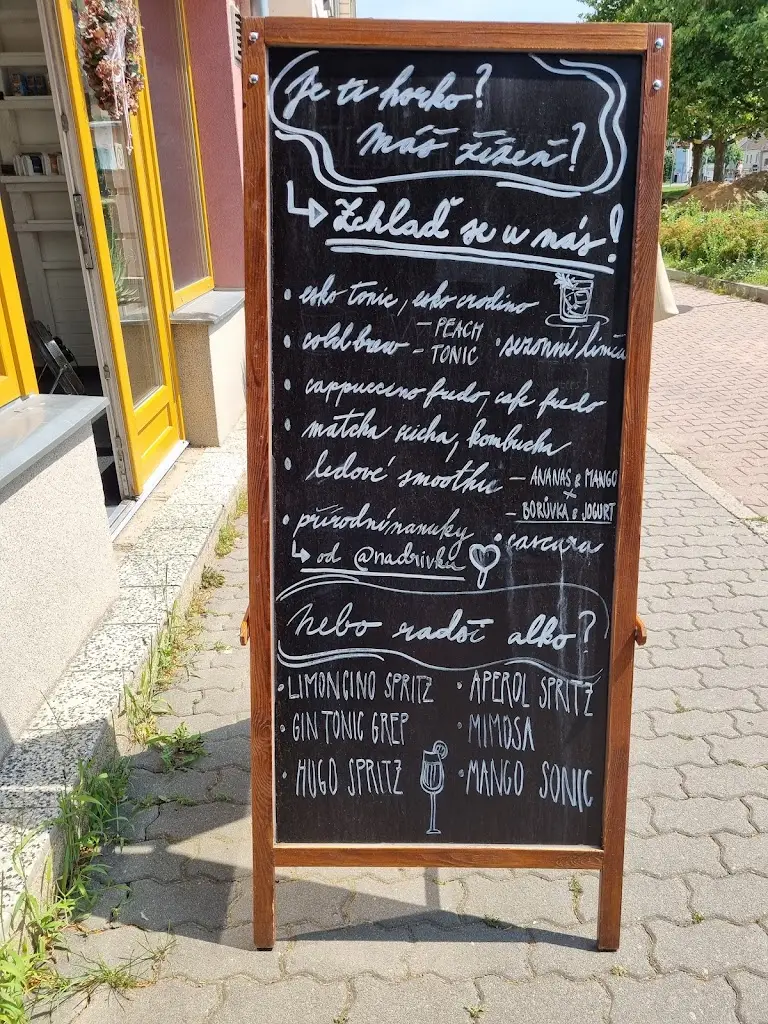 Je ti horko?
Máš žížeň?
Zchlaď se u nás!
• esko tonic, esko crodino
• cold brew – PEACH
– TONIC • sezonní limča
• cappuccino fredo, cafe fredo
• matcha vicha, kombucha
• ledové smoothie – ANANAS & MANGO
+
– BORŮVKA & JOGURT
• přírodní nanuky • cascara
od @nadrivku
nebo radši alko?
• LIMONCINO SPRITZ • APEROL SPRITZ
• GIN TONIC GREP • MIMOSA
• HUGO SPRITZ • MANGO SONIC